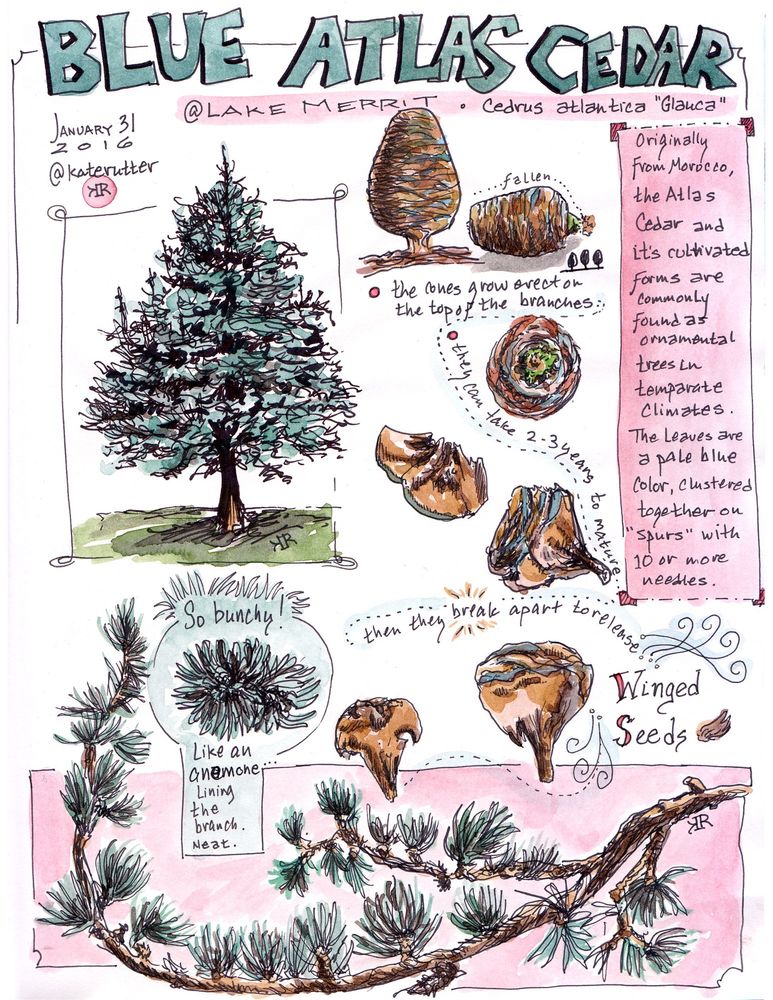 BLUE ATLAS CEDAR
@LAKE MERRIT • Cedrus atlantica "Glauca"
JANUARY 31
2016
@katerutter
KR
fallen
the cones grow erect on
the top of the branches.
they can take 2-3 years to mature
then they break apart to release
Winged
Seeds
Originally
from Morocco,
the Atlas
Cedar and
it's cultivated
forms are
commonly
found as
ornamental
trees in
temparate
climates.
The leaves are
a pale blue
color, clustered
together on
"spurs" with
10 or more
needles.
KR
So bunchy!
Like an
anemone
Lining
the
branch.
Neat.
KR